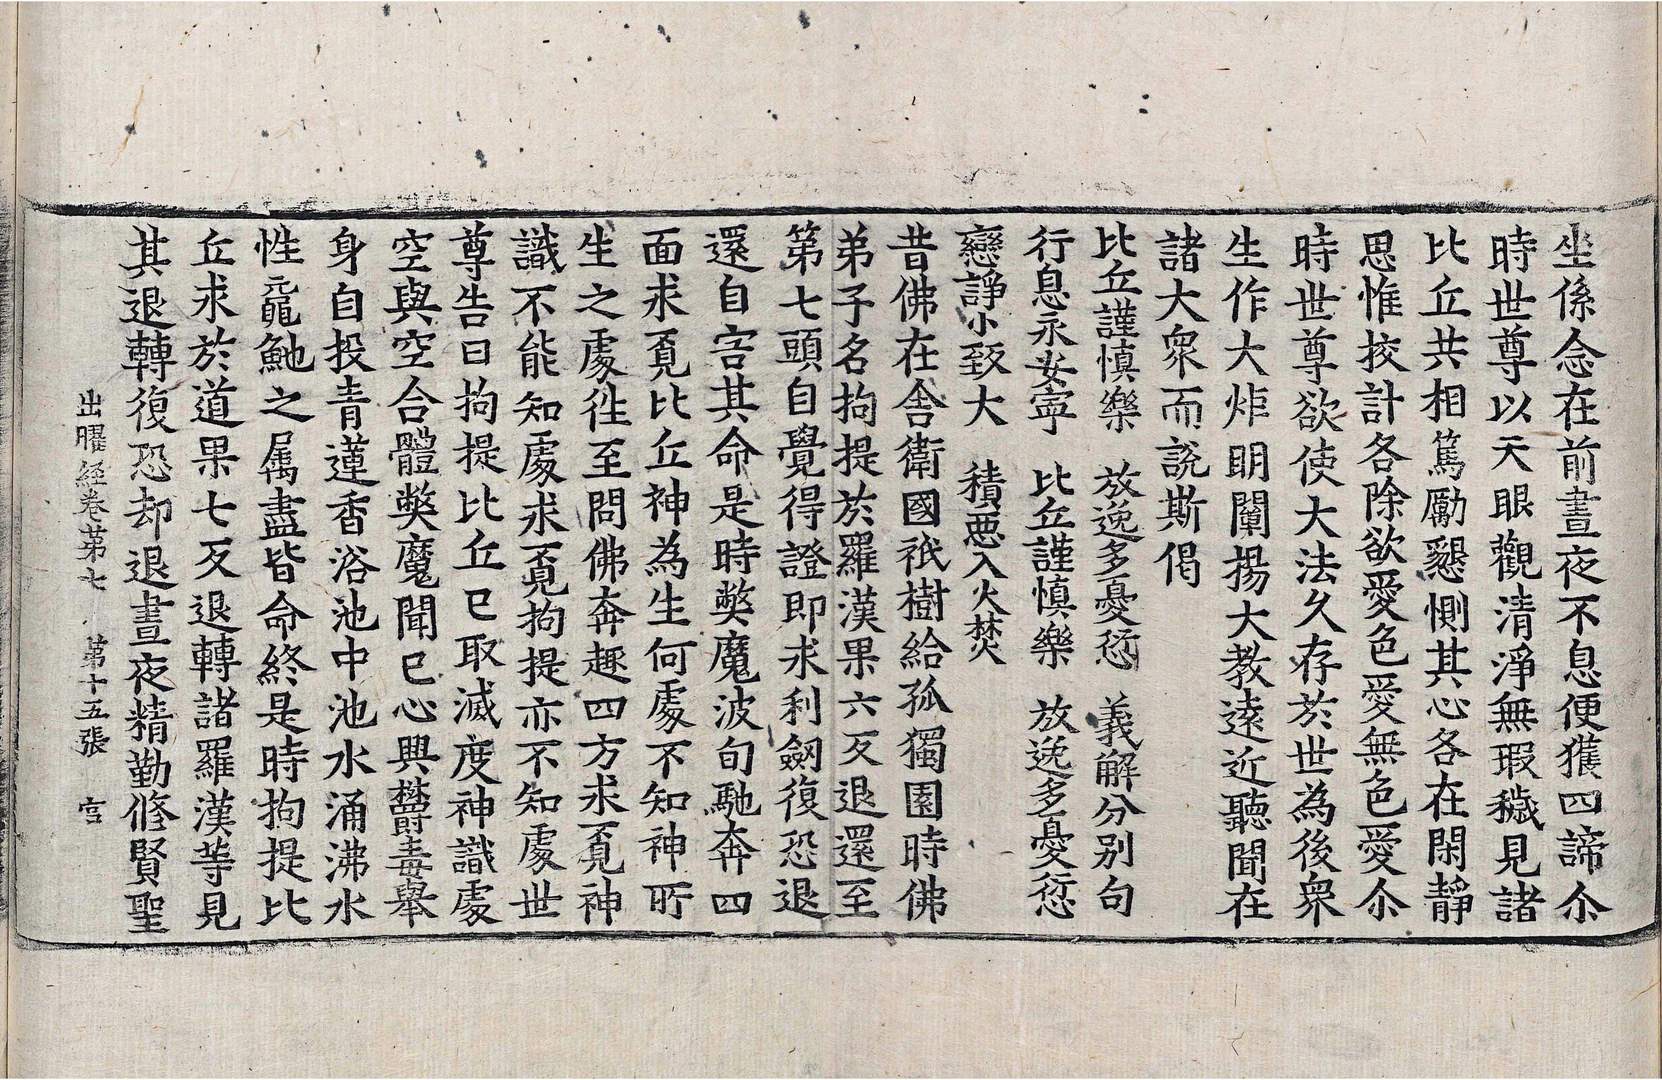 坐係念在前晝夜不息便獲四諦尒
時世尊以天眼觀清淨無瑕穢見諸
比丘共相篤勵懇惻其心各在閑靜
思惟挍計各除欲愛色愛無色愛尒
時世尊欲使大法久存於世為後衆
生作大炬明闡揚大教遠近聽聞在
諸大衆而說斯偈
比丘謹慎樂 放逸多憂愆 義解分別句
行息永安寧 比丘謹慎樂 放逸多憂愆
戀諍小致大 積惡入火焚
昔佛在舍衛國祇樹給孤獨園時佛
弟子名拘提於羅漢果六反退還至
第七頭自覺得證即求利劒復恐退
還自害其命是時弊魔波旬馳奔四
面求覓比丘神為生何處不知神所
生之處徃至問佛奔趣四方求覓神
識不能知處求覓拘提亦不知處世
尊告曰拘提比丘已取滅度神識處
空與空合體弊魔聞已心興欝毒舉
身自投青蓮香浴池中池水涌沸水
性黿鼉之屬盡皆命終是時拘提比
丘求於道果七反退轉諸羅漢等見
其退轉復恐却退晝夜精勤修賢聖
出曜経卷第七 第十五張 宫